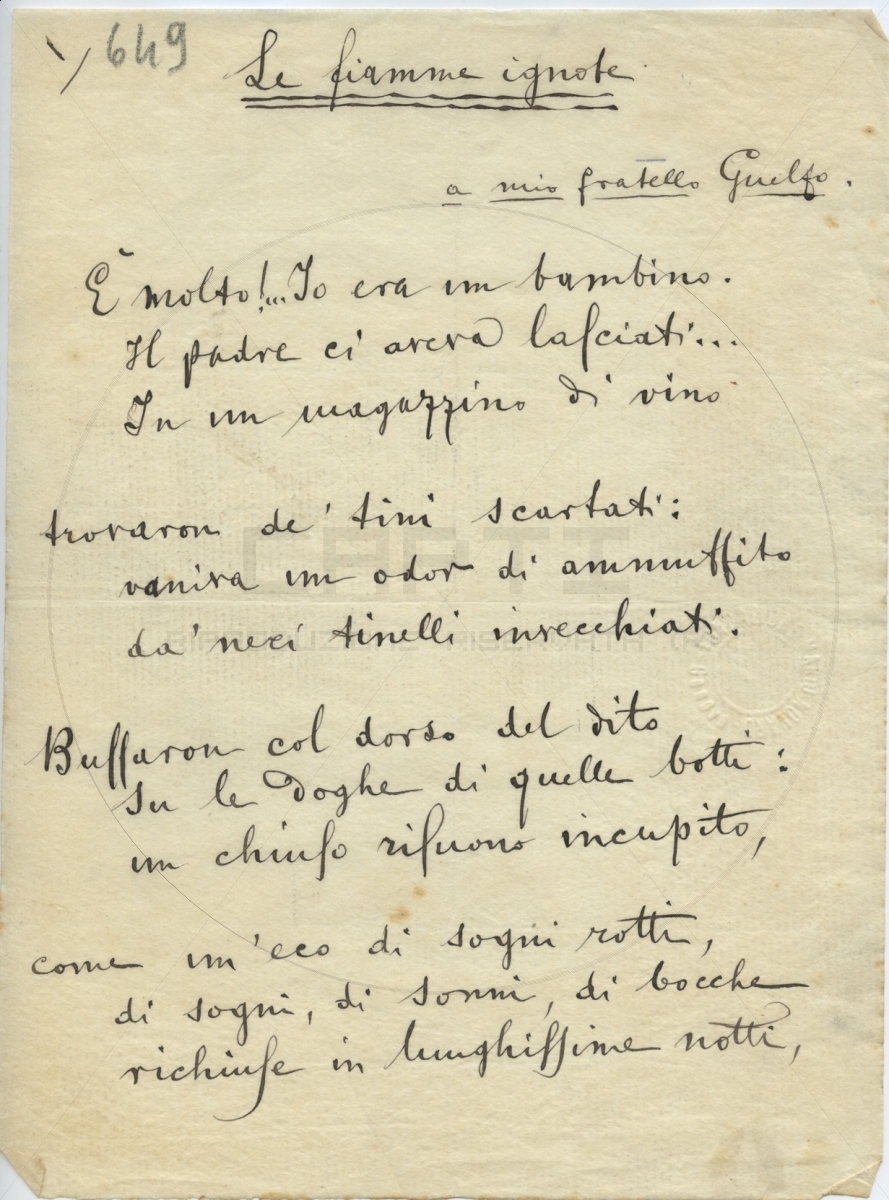 649
Le fiamme ignote
a mio fratello Guelfo.
È molto!...Io era un bambino.
Il padre ci aveva lasciati...
In un magazzino di vino
trovaron de' tini scartati:
vaniva un odor di ammuffito
da' neri tinelli invecchiati.
Bussaron col dorso del dito
su le doghe di quelle botti:
un chiuso risuono incupito,
come un'eco di sogni rotti,
di sogni, di sonni, di bocche
richiuse in lunghissime notti,